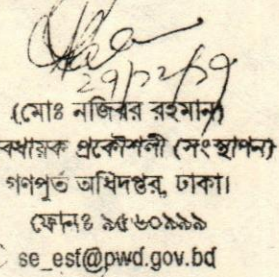 ২৭/১২/১৭
(মোঃ নজিবর রহমান)
বধায়ক প্রকৌশলী (সংস্থাপন)
গণপূর্ত অধিদপ্তর, ঢাকা।
ফোনঃ ৯৫৬০৯৯৯
se_est@pwd.gov.bd